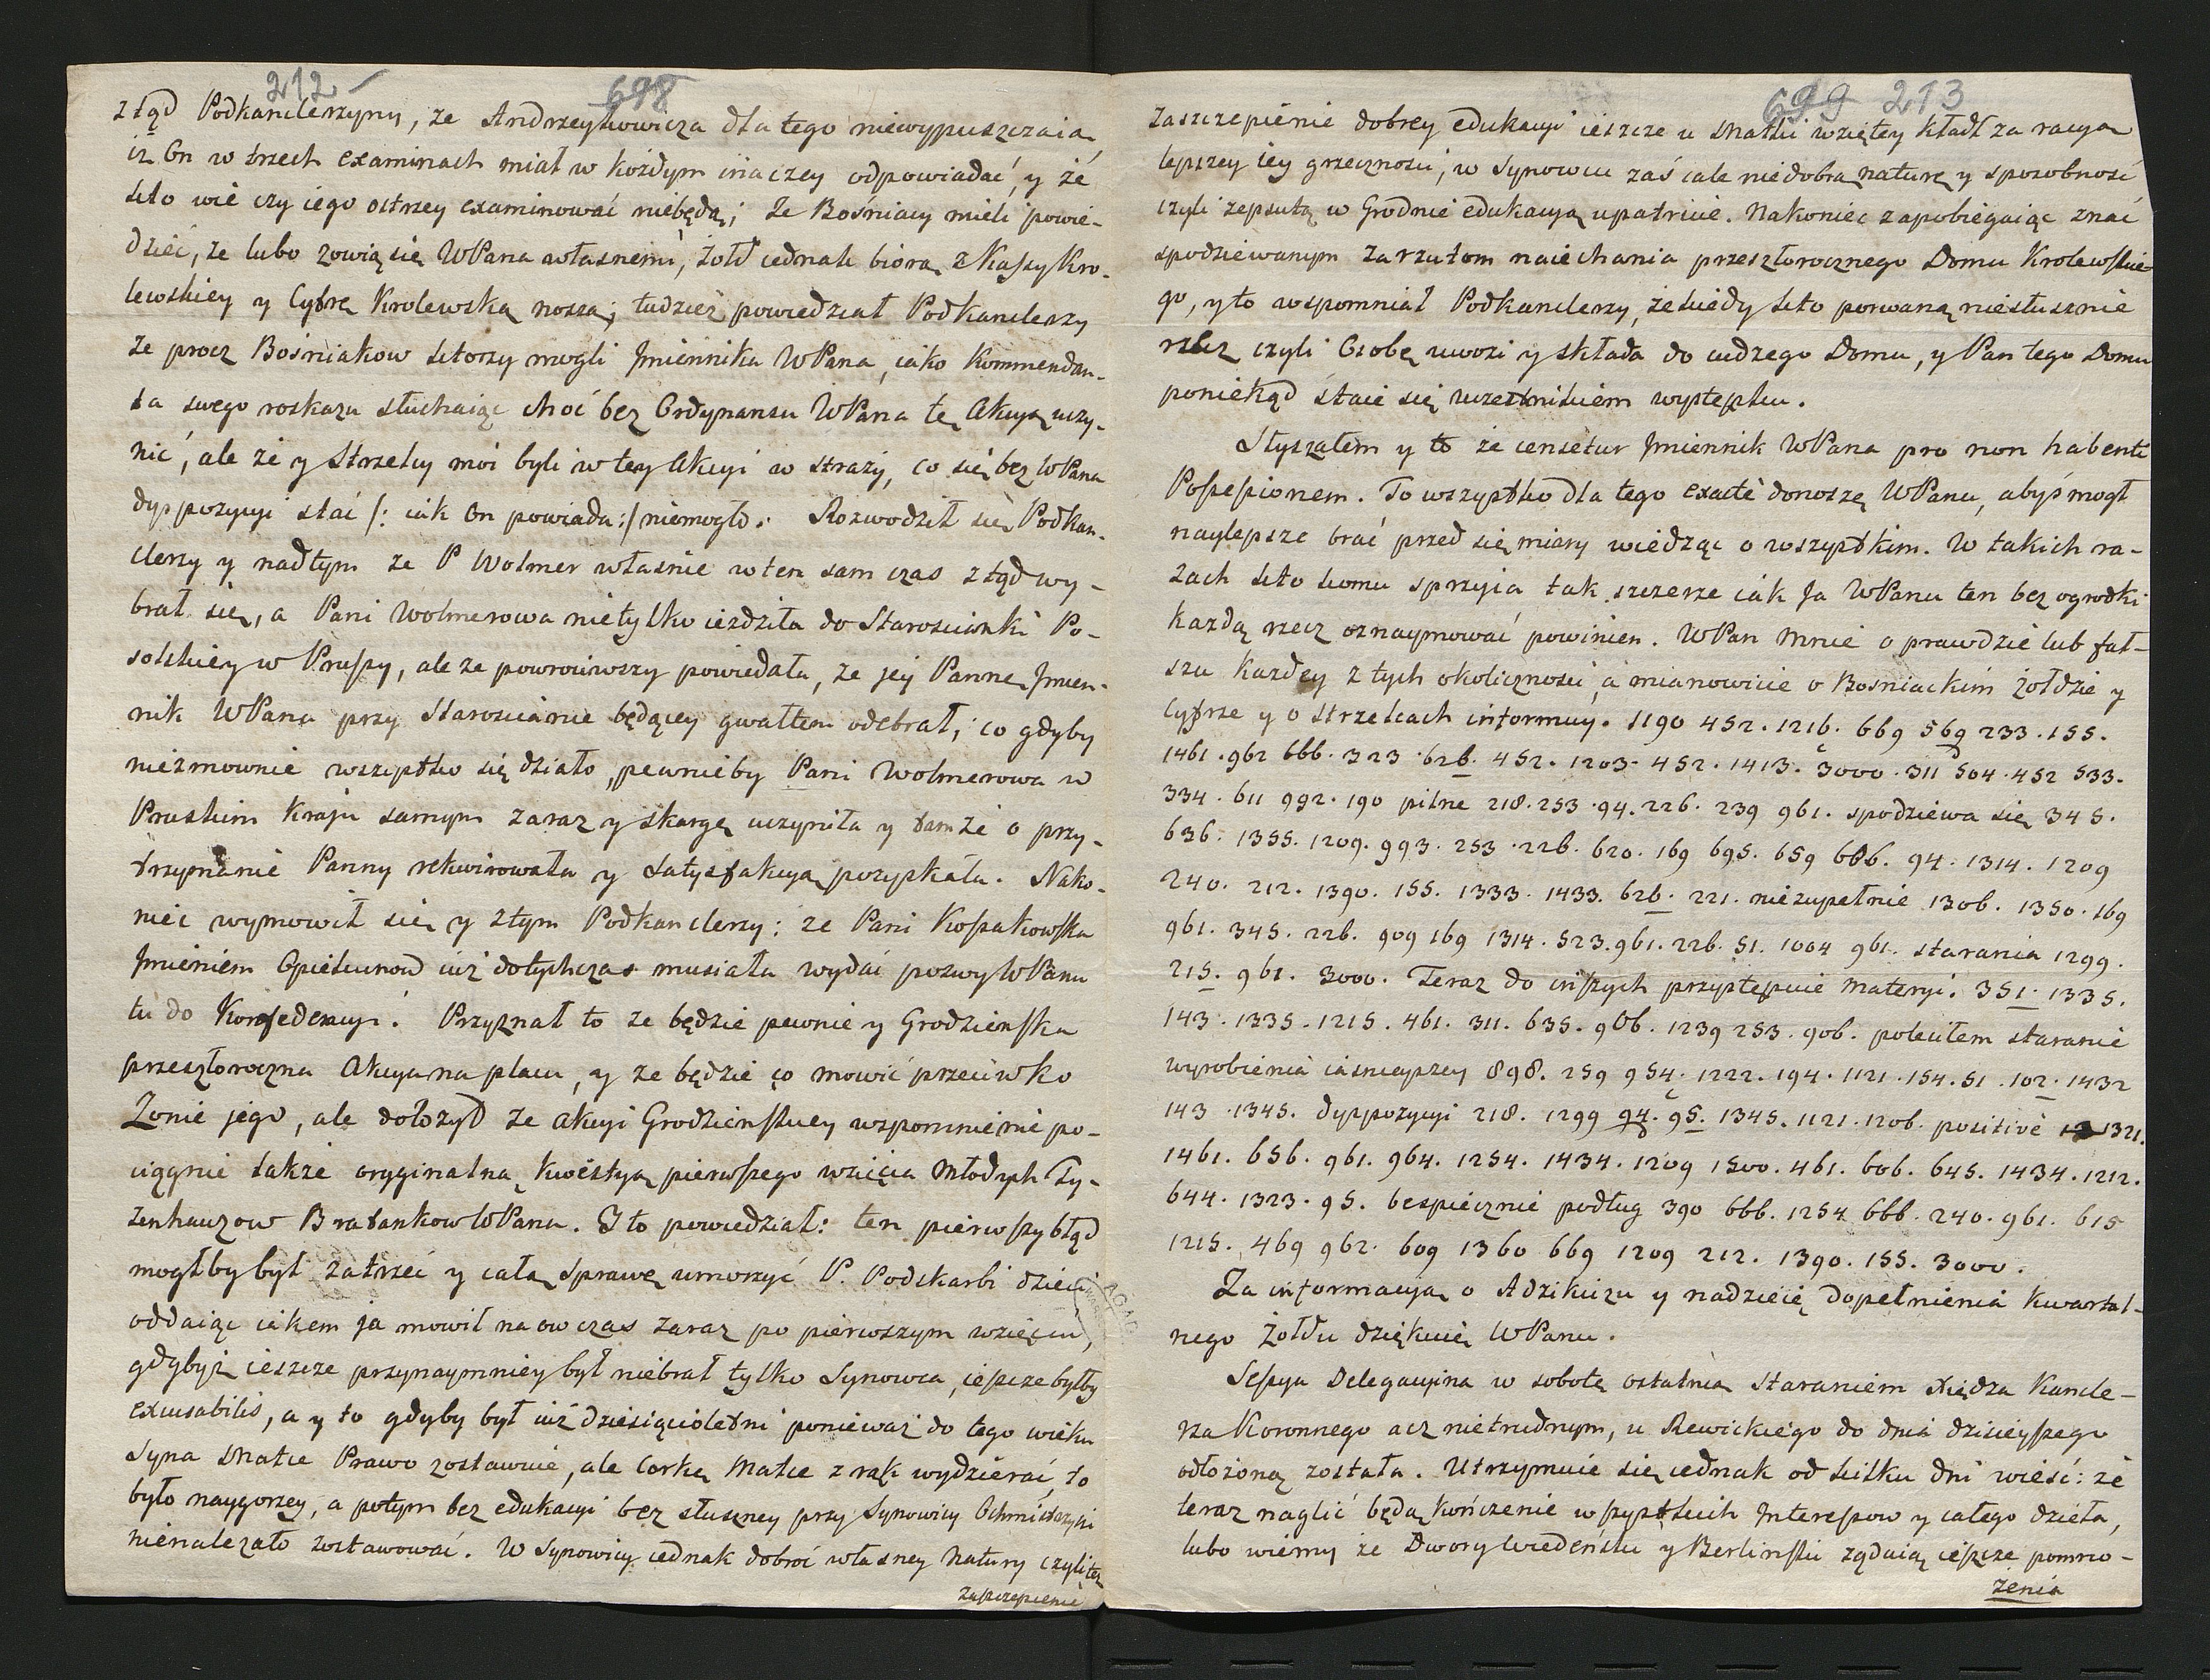 212
698
ztąd Podkanclerzyny, ze Andrzeykowicza dla tego niewypuszczaią,
iz On w trzech examinach miał w kożdym inaczey odpowiadać, y że
kto wie czy iego ostrzey examinować niebędą; Ze Bośniacy mieli powie-
dzieć, ze lubo zowią się WPana własnemi, żołd iednak biorą z Kassy Kro-
lewskiey y Cyfrę Krolewską noszą; tudzież powiedział Podkanclerzy
ze procz Bośniakow ktorzy mogli Jmiennika WPana, iako Kommendan-
ta swego roskazu słuchaiąc choć bez Ordynansu WPana tę Akcyą uczy-
nić, ale że y Strzelcy moi byli w tey Akcyi w straży, co się bez WPana
dyspozycyi stać /: iak On powiada :/ niemogło. Rozwodził się Podkan-
clerzy y nadtym ze P Wolmer własnie w ten sam czas ztąd wy-
brał się, a Pani Wolmerowa nietylko iezdziła do Starościanki Po-
solskiey w Prussy, ale ze powrociwszy powiedała, ze jey Pannę Jmien-
nik WPana przy Starościance będącey gwałtem odebrał; co gdyby
niezmownie wszystko się działo, pewnieby Pani Wolmerowa w
Pruskim Kraju samym zaraz y skargę uczyniła y tamże o przy-
trzymanie Panny rekwirowała y Satysfakcyą pozyskała. Nako-
niec wymowił się y ztym Podkanclerzy: ze Pani Kossakowska
Jmieniem Opiekunow iuż dotychczas musiała wydać pozwy WPanu
tu do Konfederacyi. Przyznał to ze będzie pewnie y Grodzienska
przeszłoroczna Akcya na placu, y ze będzie co mowić przeciwko
Zonie jego, ale dołozył ze akcyi Grodzienskiey wspomnienie po-
ciągnie także oryginalną Kwestyą pierwszego wzięcia Młodych Ty-
zenhauzow Bratankow WPana. I to powiedział: ten pierwszy błąd
mogłby był zatrzeć y całą sprawę umorzyć P. Podskarbi dzieci
oddaiąc iakem ja mowił na ow czas zaraz po pierwszym wzięciu,
gdybyż ieszcze przynaymniey był niebrał tylko Synowca, ieszcze byłby
excusabilis, a y to gdyby był iuż dziesięcioletni ponieważ do tego wieku
Syna Matce Prawo zostawuie, ale Corkę Matce z rąk wydzierać, to
było naygorzey, a potym bez edukacyi bez słuszney przy Synowicy Ochmistrzyni
nienalezało zostawować. W Synowicy iednak dobroć własney Natury czyli też
zaszczepienie
699 213
Zaszczepienie dobrey edukacyi ieszcze u Matki wziętey kładł za racyą
lepszey iey grzeczności, w Synowcu zaś cale niedobrą naturę y sposobność
czyli zepsutą w Grodnie edukacyą upatruie. Nakoniec zapobiegaiąc znać
spodziewanym zarzutom naiechania przeszłorocznego Domu Krolewskie-
go, y to wspomniał Podkanclerzy, że kiedy kto porwaną niesłusznie
rzecz czyli Osobę uwozi y składa do cudzego Domu, y Pan tego Domu
poniekąd staie się uczestnikiem występku.
Słyszałem y to że censetur Jmiennik WPana pro non habente
Possessionem. To wszystko dla tego exacté donoszę WPanu, abyś mogł
naylepsze brać przed się miary wiedząc o wszystkim. W takich ra-
zach kto komu sprzyia tak szczerze iak Ja WPanu ten bez ogrodki
każdą rzecz oznaymować powinien. WPan mnie o prawdzie lub fał-
szu każdey z tych okoliczności, a mianowicie o Bosniackim żołdzie y
Cyfrze y o strzelcach informuy. 1190 452. 1216. 669 569 233. 155.
1461. 962 666. 323. 626. 452. 1203. 452. 1413. 3000. 311 504. 452 533.
334. 611 992. 190 pilne 218. 253. 94. 226. 239 961. spodziewa się 345.
636. 1355. 1209. 993. 253. 226. 620. 169 695. 659 666. 94. 1314. 1209
240. 212. 1390. 155. 1333. 1433. 626. 221. niezupełnie 1306. 1350. 169
961. 345. 226. 909 169 1314. 523. 961. 226. 51. 1004 961. starania 1299.
215. 961. 3000. Teraz do inszych przystępuie materyi. 351. 1335.
143. 1335. 1215. 461. 311. 635. 966. 1239 253. 906. poleciłem staranie
wyrobienia iasnieyszey 898. 259 954. 1222. 194. 1121. 154. 51. 102. 1432
143. 1345. dyspozycyi 218. 1299 94. 95. 1345. 1121. 1206. positivé 1321.
1461. 656. 961. 964. 1254. 1434. 1209 1500. 461. 606. 645. 1434. 1212.
644. 1323. 95. bespiecznie podług 390 666. 1254 666. 240. 961. 615
1215. 469 962. 609 1360 669 1209 212. 1390. 155. 3000.
Za informacyą o Adzikiczu y nadzieię dopełnienia kwartal-
nego żołdu dziękuię WPanu.
Sessya Delegacyina w sobotę ostatnią staraniem Xiędza Kancle-
rza Koronnego acz nietrudnym, u Rewickiego do dnia dzisieyszego
odłożoną została. Utrzymuie się iednak od kilku dni wieść: że
teraz naglić będą kończenie wszystkich Interessow y całego dzieła,
lubo wiemy że Dwory Wiedeński y Berliński żądaią ieszcze pomno-
żenia